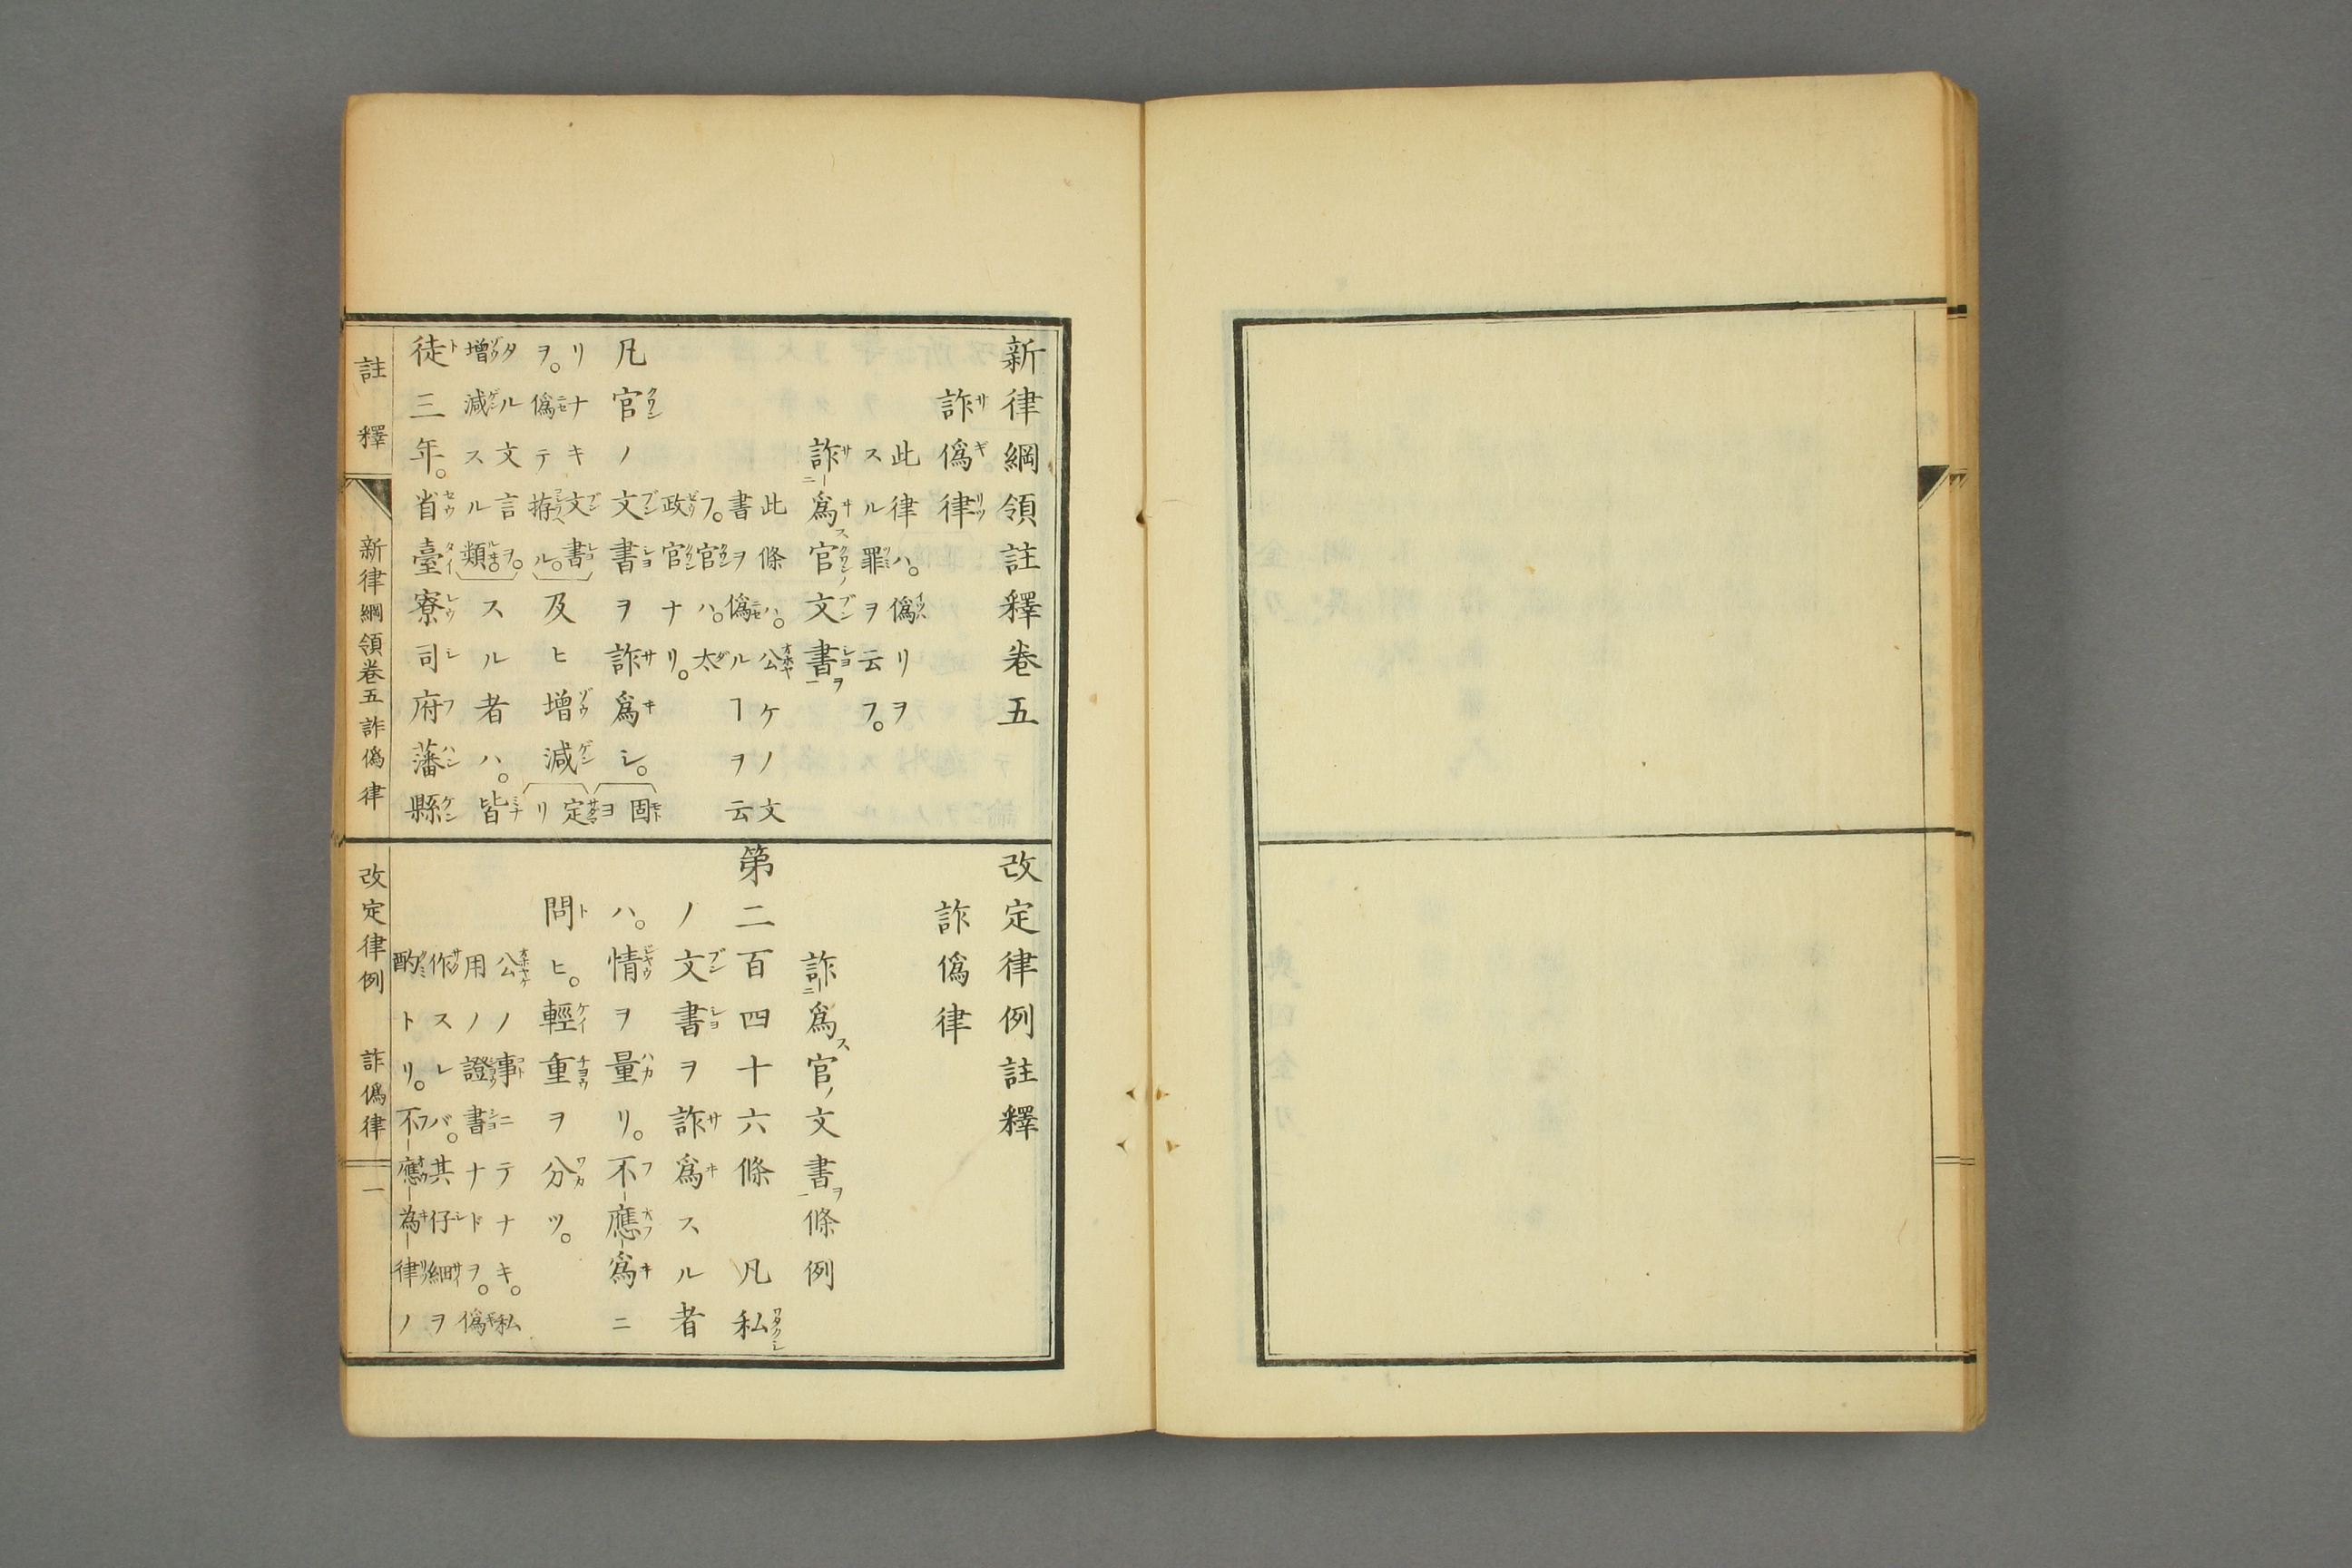 新律綱領註釋卷五
詐僞律
此律ハ。僞リヲ
スル罪ヲ云フ。
詐爲官文書
此條ハ。公ケノ文
書ヲ僞ルヿヲ云
フ。官ハ。太
政官ナリ。
凡官ノ文書ヲ詐爲シ。固ヨ
リナキ文書
ヲ。僞テ拵ル。及ヒ增減定リ
タル文言ヲ。
增減スル類。スル者ハ。皆
徒三年。省臺寮司府藩縣
改定律例註釋
詐僞律
詐爲官ノ文書ヲ條例
第二百四十六條 凡私
ノ文書ヲ詐爲スル者
ハ。情ヲ量リ。不應爲ニ
問ヒ。輕重ヲ分ツ。
公ノ事ニテナキ。私
用ノ證書ナドヲ。僞
作スレバ。其仔細ヲ
酌トリ。不應為律ノ
註釋 新律綱領卷五 詐僞律
改定律例 詐僞律 一